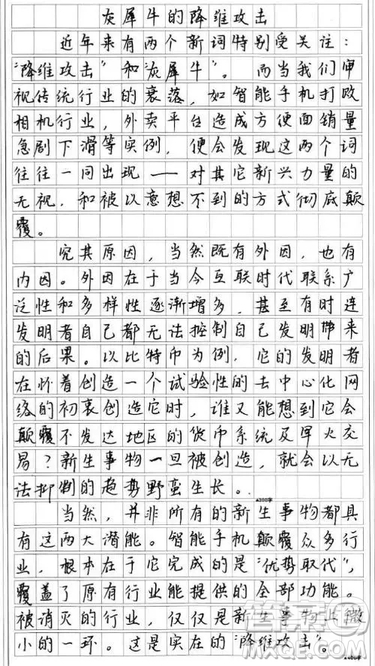 灰犀牛的降维攻击
近年来有两个新词特别受关注：
“降维攻击”和“灰犀牛”。而当我们审
视传统行业的衰落，如智能手机打败
相机行业，外卖平台造成方便面销量
急剧下滑等实例，便会发现这两个词
往往一同出现——对其它新兴力量的
无视，和被以意想不到的方式彻底颠
覆。
究其原因，当然既有外因，也有
内因。外因在于当今互联时代联系广
泛性和多样性逐渐增多，甚至有时连
发明者自己都无法控制自己发明带来
的后果。以比特币为例，它的发明者
在怀着创造一个试验性的去中心化网
络的初衷创造它时，谁又能想到它会
颠覆不发达地区的货币系统及军火交
易？新生事物一旦被创造，就会以无
法抑制的趋势野蛮生长。
当然，并非所有的新生事物都具
有这两大潜能。智能手机颠覆众多行
业，根本在于它完成的是“优势取代”，
覆盖了原有行业能提供的全部功能。
被消灭的行业，仅仅是新生事物微
小的一环。这是实在的“降维攻击”。